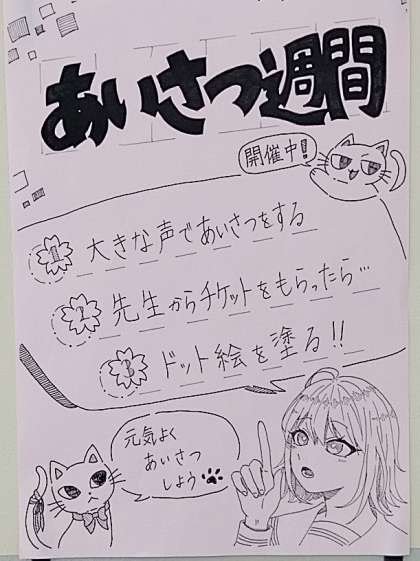 あいさつ週間
開催中!!
1 大きな声であいさつをする
2 先生からチケットをもらったら…
3 ドット絵を塗る!!
元気よく
あいさつ
しよう